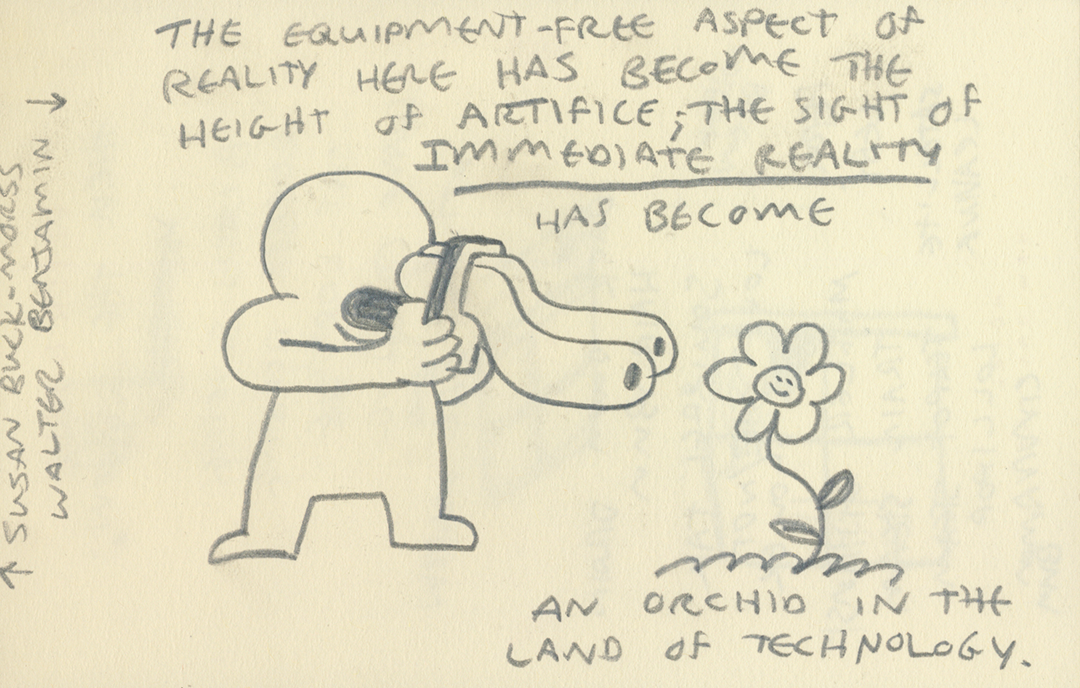 THE EQUIPMENT-FREE ASPECT OF
REALITY HERE HAS BECOME THE
HEIGHT OF ARTIFICE; THE SIGHT OF
IMMEDIATE REALITY
HAS BECOME
AN ORCHID IN THE
LAND OF TECHNOLOGY.
↑ SUSAN BUCK-MORSS
WALTER BENJAMIN ↓